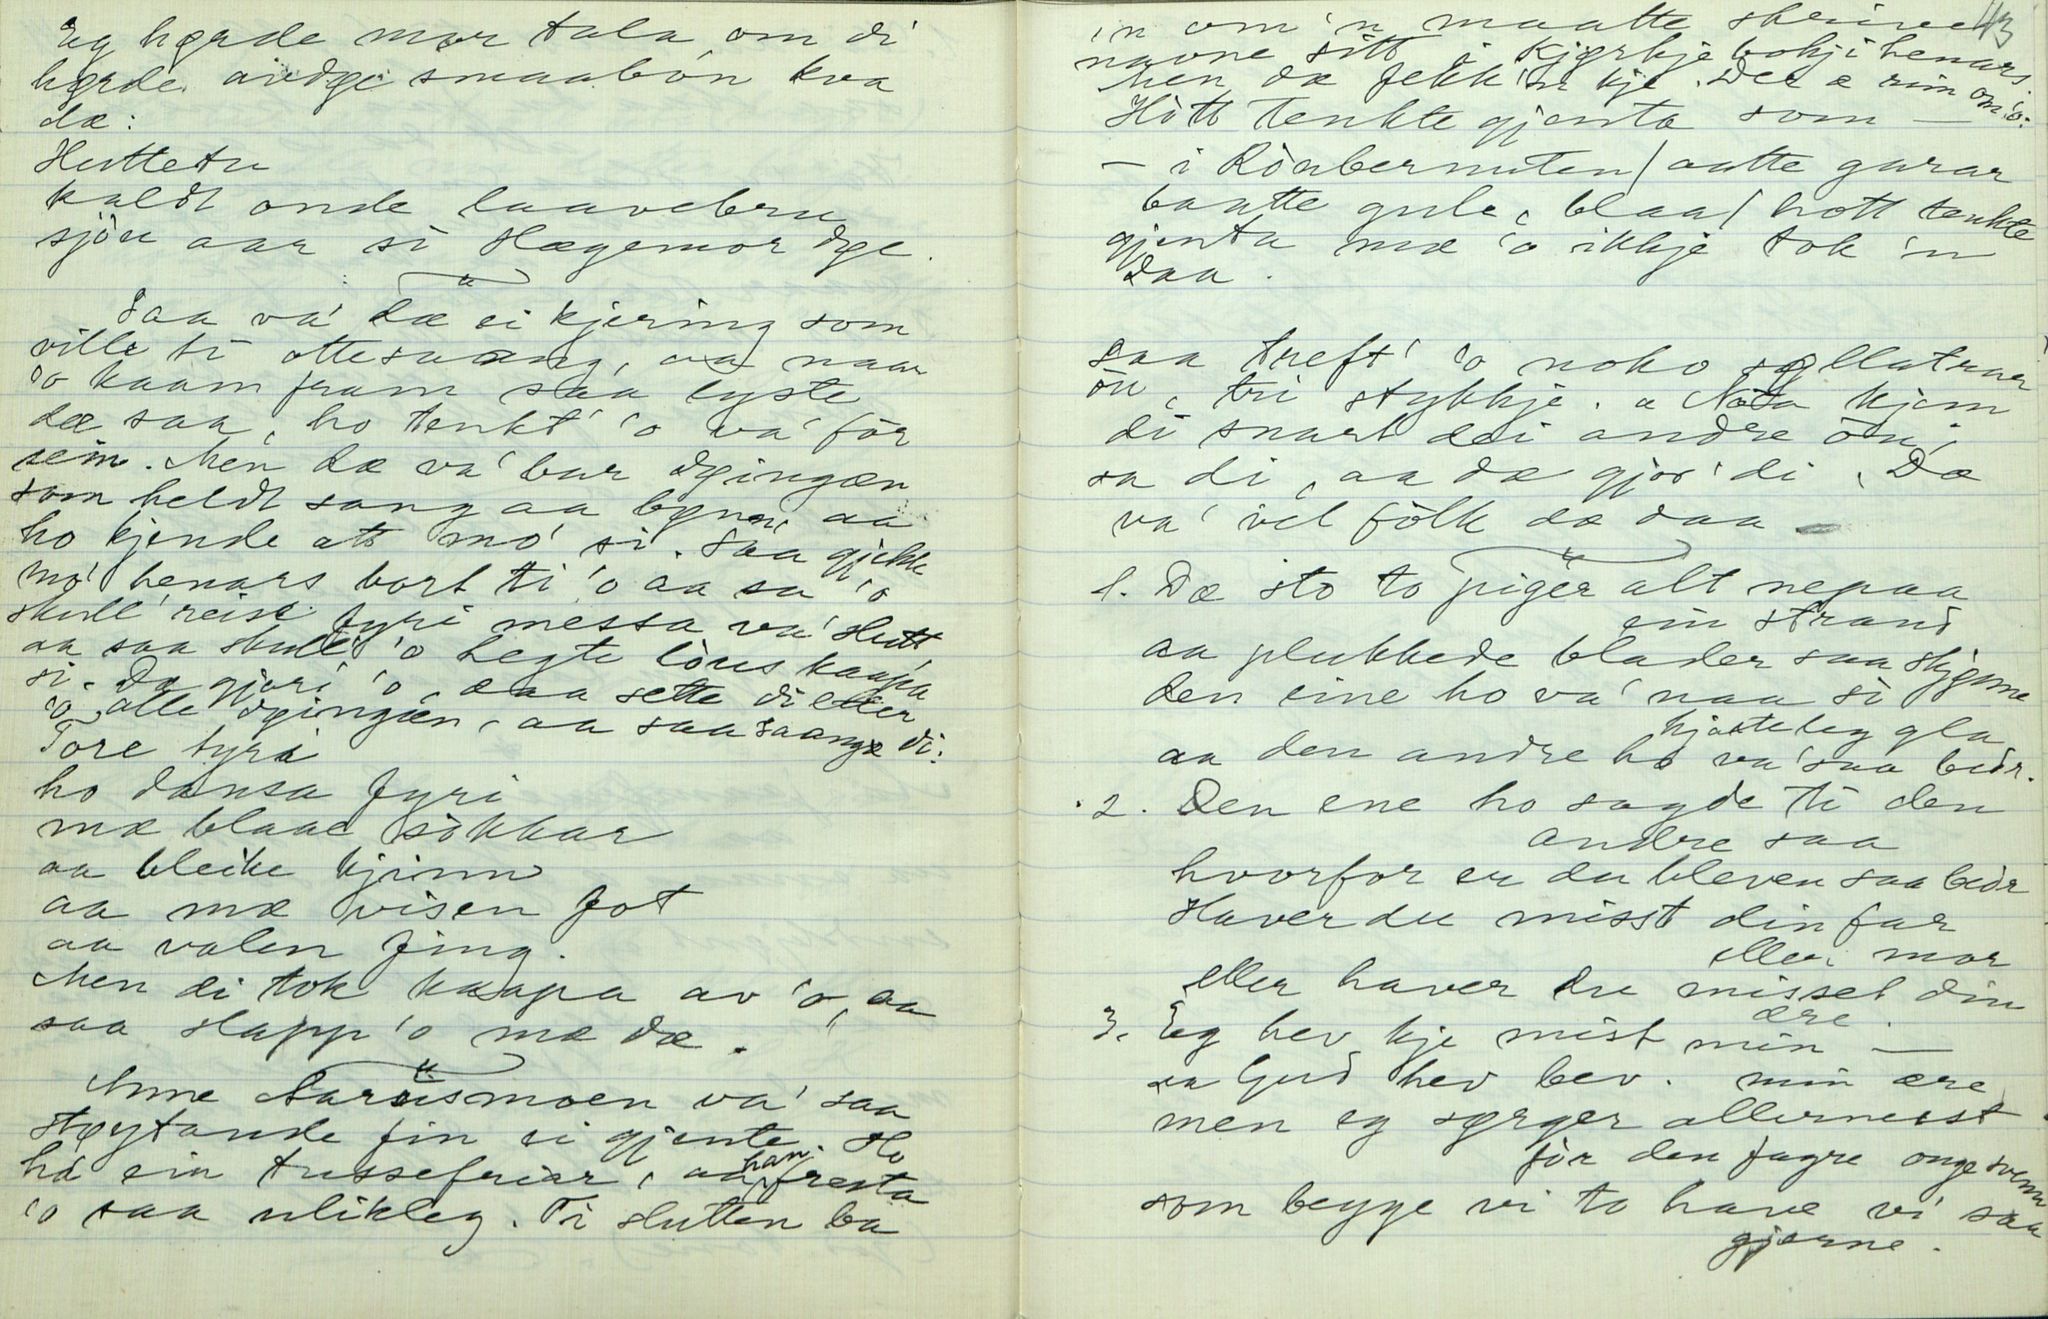 Eg hørde mor tala om di
hørde audge smaabón kva
dæ:
Huttetu
kaldt onde laavebru
sjöu aar si Hægemor døe.
Saa va' dæ ei kjering som
ville ti ottesaang, aa naar
'o kaam fram saa lyste
dæ saa, ho tenkt' 'o va' för
sein. Men dæ va' bar døingæn
som heldt sang aa bynn, aa
ho kjende att mo' si. Saa gjekk
mo' henars bort ti 'o aa sa 'o
skull' reise fyri messa va' slutt,
aa saa skull' 'o hegte löus kaapa
si. Dæ gjori 'o, daa sette di etter
'o alle døingæn, aa saa saange di:
Tore tyri
ho dansa fyri
mæ blaae sökkar
aa bleike kjinn
aa mæ visen fot
aa valen fing.
Men di tok kaapa av 'o, aa
saa slapp 'o mæ dæ.
Anne Aarusmoen va' saa
støytande fin ei gjente. Ho
ha ein tussefriar, aa han fresta
'o saa ulikleg. Ti slutten ba
43
'n om 'n maatte skrive
navne sitt i kjørkjebokji henars.
Men dæ fekk 'n kje. Det æ rim om 'o:
Hött tenkte gjenta som —
— i Rönbernuten / aatte garar
baatte gule, blaa / hott tenkte
gjenta mæ 'o ikkje tok 'n
daa.
Saa treft' 'o noko
ön, tri stykkje. a kjem
di snart dei andre ön,
sa di, aa dæ gjor' di. Dæ
va' vel fölk dæ daa —
1. Dæ sto to piger alt nepaa
ein strand
aa plukkede blader saa skjønne
den eine ho va' naa si
hjarteleg gla
aa den andre ho va' saa bedr.
2. Den ene ho sagde ti den
andre saa
hvorfor er du bleven saa bedr
Haver du misst din far
eller mor
eller haver du misset din
ære.
3. Eg hev kje mist min —
aa Gud hev bev. min ære
men eg sørger allermeist
för den fagre onge svenn
som begge vi to have vi saa
gjerne.